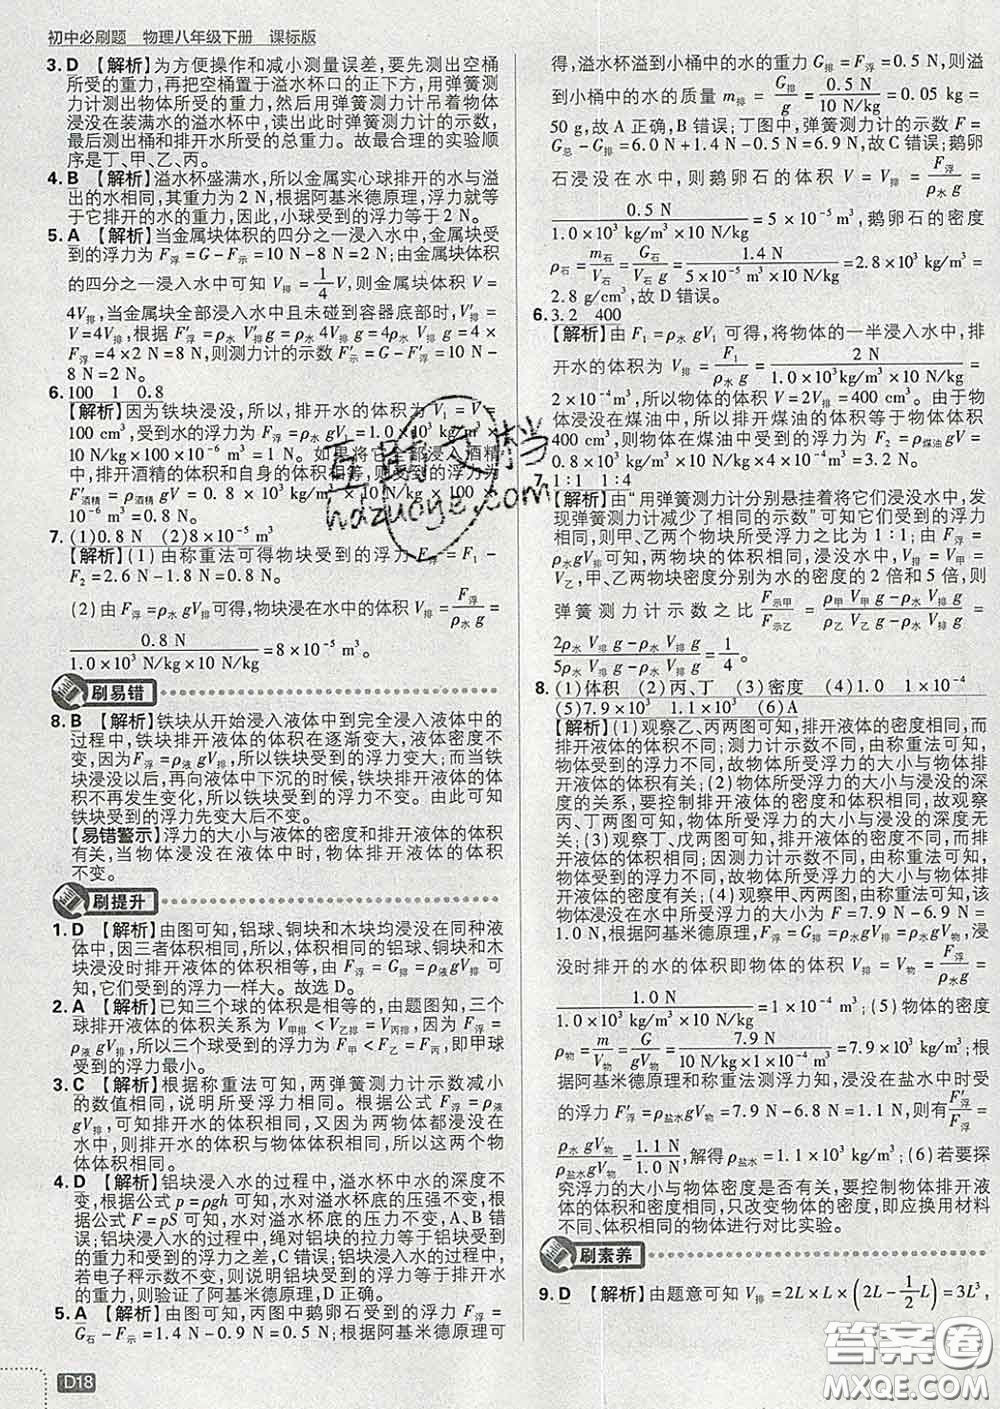 初中必刷题 物理八年级下册 课标版
3. D 【解析】为方便操作和减小测量误差,要先测出空桶
所受的重力,再把空桶置于溢水杯口的正下方,用弹簧测
力计测出物体所受的重力,然后用弹簧测力计吊着物体
浸没在装满水的溢水杯中,读出此时弹簧测力计的示数,
最后测出桶和排开水所受的总重力。故最合理的实验顺
序是丁、甲、乙、丙。
4. B 【解析】溢水杯盛满水,所以金属实心球排开的水与溢
出的水相同,其重力为 2 N,根据阿基米德原理,浮力就等
于它排开的水的重力,因此,小球受到的浮力等于 2 N。
5. A 【解析】当金属块体积的四分之一浸入水中,金属块受
到的浮力为 F浮=G-F示=10 N-8 N=2 N;由金属块体积
的四分之一浸入水中可知 V排=1/4V,则金属块体积 V=
4V排,当金属块全部浸入水中且未碰到容器底部时,V′排=
V=4V排,根据 F′浮=ρ水 V′排g=ρ水 4V排g=4ρ水 V排g=4×
F浮=4×2 N=8 N,则测力计的示数 F′示=G-F′浮=10 N-
8 N=2 N。
6. 100 1 0.8
【解析】因为铁块浸没,所以,排开水的体积为 V1=V=
100 cm³,受到水的浮力为 F浮=G排=1.0×10³
10 N/kg×100×10⁻⁶ m³=1 N。如果将它全部浸入酒精
中,排开酒精的体积和自身的体积相等,则受到的浮力为
F′酒精=ρ酒精 gV=0.8×10³ kg/m³×10 N/kg×100×
10⁻⁶ m³=0.8 N。
7. (1)0.8 N (2)8×10⁻⁵ m³
【解析】(1)由称重法可得物块受到的浮力 F浮=F1-
F2=2.6 N-1.8 N=0.8 N。
(2)由 F浮=ρ水 gV排可得,物块浸在水中的体积 V排=F浮/(ρ水 g)=
0.8 N/(1.0×10³ N/kg×10 N/kg)=8×10⁻⁵ m³。
刷易错
8. B 【解析】铁块从开始浸入液体中到完全浸入液体中的
过程中,铁块排开液体的体积在逐渐变大,液体密度不
变,因为F浮=ρ液 gV排,所以铁块受到的浮力变大;而当铁
块浸没以后,再向液体中下沉的时候,铁块排开液体的体
积不再发生变化,所以铁块受到的浮力不变。由此可知
铁块受到的浮力先变大后不变。
【易错警示】浮力的大小与液体的密度和排开液体的体积
有关,当物体浸没在液体中时,物体排开液体的体积
不变。
刷提升
1. D 【解析】由图可知,铝球、铜块和木块均浸没在同种液
体中,因三者体积相同,所以,体积相同的铝球、铜块和木
块浸没时排开液体的体积相等,由 F浮=G排=ρ液gV排 可
知,它们受到的浮力一样大。故选 D。
2. A 【解析】已知三个球的体积是相等的,由题图知,三个
球排开液体的体积关系为 V甲排<V乙排=V丙排,因为 F浮=
ρ液 gV排,所以三个球受到的浮力为 F甲<F乙=F丙,即甲球
受到的浮力最小。
3. C 【解析】根据称重法可知,两弹簧测力计示数减小
的数值相同,说明所受浮力相同。根据公式 F浮=ρ液
gV排,可知排开水的体积相同,又因为两物体都浸没在
水中,则排开水的体积与物体体积相同,所以这两个物
体体积相同。
4. D 【解析】铝块浸入水的过程中,溢水杯中水的深度不
变,根据公式 p=ρgh 可知,水对溢水杯底的压强不变,根
据公式 F=pS 可知,水对溢水杯底的压力不变,A、B 错
误;铝块浸入水的过程中,绳对铝块的拉力等于铝块的
重力和受到的浮力之差,C 错误;铝块浸入水的过程中,
若电子秤示数不变,则说明铝块受到的浮力等于排开水
的重力,则验证了阿基米德原理,D 正确。
5. A 【解析】由图可知,丙图中鹅卵石受到的浮力 F浮=
G石-F示=1.4 N-0.9 N=0.5 N;根据阿基米德原理可
得,溢水杯溢到小桶中的水的重力 G排=F浮=0.5 N,则溢
到小桶中的水的质量 m排=G排/g=0.5 N/(10 N/kg)=0.05 kg=
50 g,故 A 正确,B 错误;丁图中,弹簧测力计的示数 F=
G总-G排=6.0 N+1.4 N-0.5 N=6.9 N,故 C 错误;鹅卵
石浸没在水中,则鹅卵石的体积 V=V排=F浮/(ρ水 g)=
0.5 N/(1.0×10³ kg/m³×10 N/kg)=5×10⁻⁵ m³,鹅卵石的密度
ρ石=m石/V石=G石/(V石 g)=1.4 N/(5×10⁻⁵ m³×10 N/kg)=2.8×10³ kg/m³=
2.8 g/cm³,故 D 错误。
6. 3.2 400
【解析】由 F浮=ρ水 gV1 可得,将物体的一半浸入水中,排
开水的体积为 V排=F1/(ρ水 g)=2 N/(1.0×10³ kg/m³×10 N/kg)=
2×10⁻⁴ m³,所以物体的体积为 V=2V排=400 cm³。由于物
体浸没在煤油中,所以排开煤油的体积等于物体体积
400 cm³,则物体在煤油中受到的浮力为 F2=ρ煤油gV=
0.8×10³ kg/m³×10 N/kg×400×10⁻⁶ m³=3.2 N。
7. 1:1 1:4
【解析】由“用弹簧测力计分别悬挂着将它们浸没水中,发
现弹簧测力计减少了相同的示数”可知它们受到的浮力
相同,则甲、乙两个物块所受浮力之比为 1:1;由 F浮=
ρ水 gV排可知,两物块的体积相同,浸没水中,V排=V甲=
V乙,甲、乙两物块密度分别为水的密度的 2 倍和 5 倍,则
弹簧测力计示数之比 F示甲/F示乙=(ρ甲 V甲 g-ρ水 V排 g)/(ρ乙 V乙 g-ρ水 V排 g)=
(2ρ水 V排 g-ρ水 V排 g)/(5ρ水 V排 g-ρ水 V排 g)=1/4。
8. (1)体积 (2)丙、丁 (3)密度 (4)1.0 1×10⁻⁴
(5)7.9×10³ 1.1×10³ (6)A
【解析】(1)观察乙、丙两图可知,排开液体的密度相同,而
排开液体的体积不同;测力计示数不同,由称重法可知,
物体所受浮力不同,故物体所受浮力的大小与排开液体
的体积有关;(2)物体所受浮力的大小与浸没的
深度的关系,要控制排开液体的体积和密度相同,故观察
丙、丁两图可知,物体所受浮力的大小与浸没的深度无
关;(3)观察丁、戊两图可知,排开液体的密度不同,而排
开液体的体积相同;因测力计示数不同,由称重法可知,
物体所受浮力不同,故物体所受浮力的大小与排开液体
的密度有关;(4)观察甲、丙两图,由称重法可知,该物体
浸没在水中所受浮力的大小为 F=7.9 N-6.9 N=
1.0 N,根据阿基米德原理,F浮=G排=ρ水gV排=ρ水gV物,浸
没时排开的水的体积即物体的体积 V排=V物=F浮/(ρ水 g)=
1.0 N/(1.0×10³ kg/m³×10 N/kg)=1×10⁻⁴ m³;(5)物体的密度
ρ物=m/V物=G/(V物 g)=7.9 N/(10 N/kg×1×10⁻⁴ m³)=7.9×10³ kg/m³;根
据阿基米德原理和称重法测浮力知,浸没在盐水中时受
的浮力 F′浮=ρ盐水gV物=7.9 N-6.8 N=1.1 N,则有F′浮/F浮=
ρ盐水 gV物/(ρ水 gV物)=1.1 N/1.0 N,解得 ρ盐水=1.1×10³ kg/m³;(6)若要探
究浮力的大小与物体密度是否有关,要控制物体排开液
体的体积和密度相同,只改变物体的密度,即应换用材料
不同、体积相同的物体进行对比实验。
刷素养
9. D 【解析】由题意可知 V排=2L×L×(2L-1/2L)=3L³,
D18
hdzuoye.com
答案圈
MXQE.COM